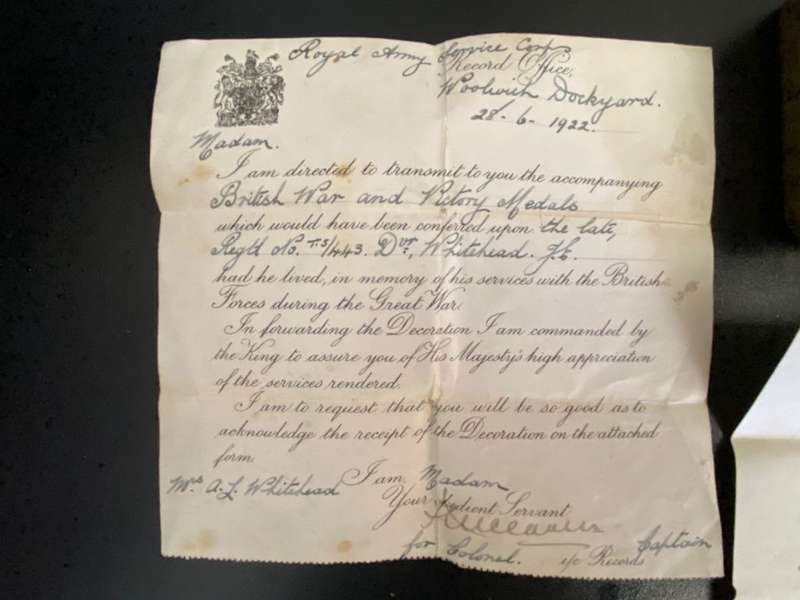 Royal Army Service Corps
Record Office,
Woolwich Dockyard.
28-6-1922.
Madam.
I am directed to transmit to you the accompanying
British War and Victory Medals
which would have been conferred upon the late,
Regtl No. T.S/443. Dvr, Whitehead. J.E.
had he lived, in memory of his services with the British
Forces during the Great War.
In forwarding the Decoration I am commanded by
the King to assure you of His Majesty's high appreciation
of the services rendered.
I am to request that you will be so good as to
acknowledge the receipt of the Decoration on the attached
form.
I am, Madam
Mrs A. L. Whitehead
Your Obedient Servant
Captain
for Colonel. i/c Records